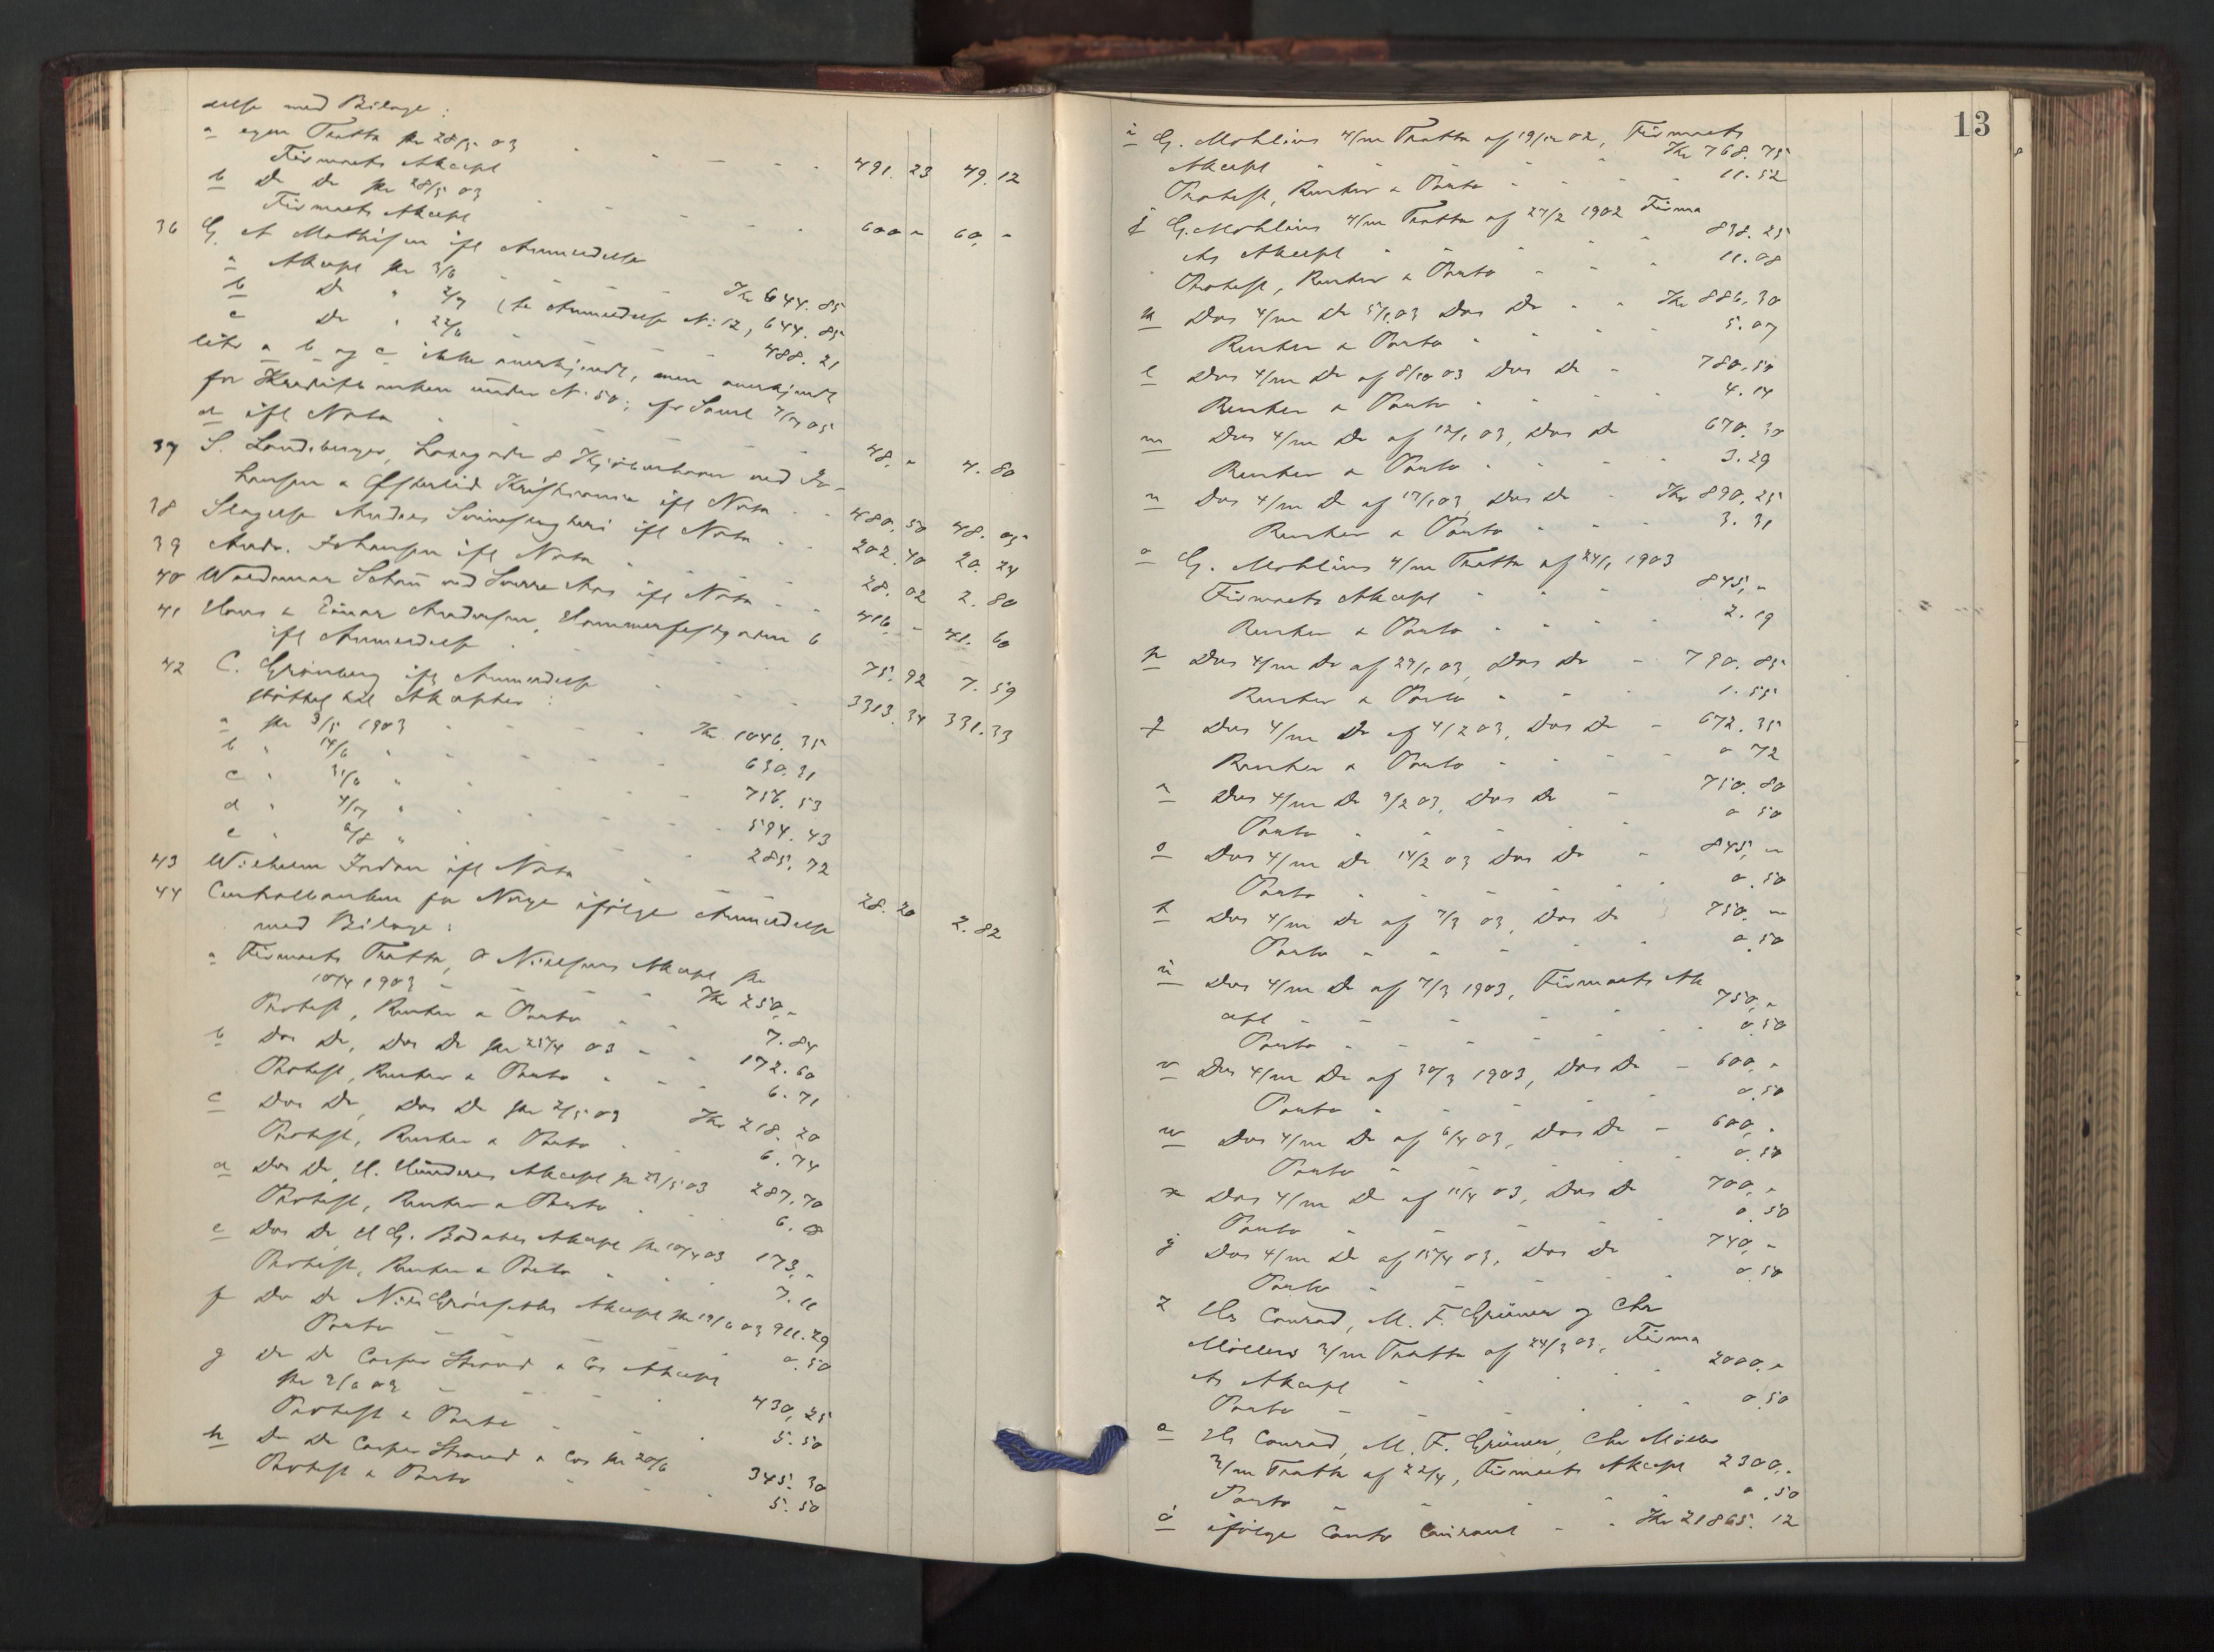 delse med Bilage:
a egen Tratta pr 28/5 03
Firmaets Akcept - - - - 491. 23 49. 12
b Do Do pr 28/5 03
Firmaets Akcept - - - 600 " 60, "
36 G. A Mathisen ifl Anmeldelse
a Akcept pr 3/6 - - - Kr 644. 85
b Do " 2/7 (se Anmeldelse N: 12, 644. 85
c Do " 22/6 - - - 488. 21
litr a b og c ikke anerkjendt, men anerkjendt
for Kreditbanken under N: 50; cfr Saml 7/7 05
d ifl Nota - - - 48, " 4. 80
37 S. Landsberger, Kjöbenhavn ved Jo-
hansen & Kristiania ifl Nota - - 480. 50 48. 05
38 Slagelse Andels Svineslagteri ifl Nota - - 202. 40 20. 24
39 Andr. Johansen ifl Nota - - 28. 02 2. 80
40 Waldemar ved Sverre Aas ifl Nota - - 416, - 41. 60
41 Hans & Einar Andersen, Hammerfestgaten 6
ifl Anmeldelse - - - 75. 92 7. 59
42 C. Grönberg ifl Anmeldelse - - - 3313. 34 331. 33
støttet til Akcepter:
a pr 3/5 1903 - - - Kr. 1046. 35
b " 14/6 " - - - 630. 31
c " 31/6 " - - - 756. 53
d " 4/7 " - - - 594. 43
e " 6/8 " - - - 285. 72
43 Wilhelm Jordan ifl Nota - - 28. 20 2. 82
44 Centralbanken for Norge ifølge Anmeldelse
med Bilage:
a Firmaets Tratta, O Nielsens Akcept pr
10/4 1903 - - - Kr 250, -
Protest, Renter & Porto - - 7. 84
b Dos Do, Dos Do pr 25/4 03 - - 172. 60
Protest, Renter & Porto - - - 6. 71
c Dos Do, Dos Do pr 2/5 03 Kr 218. 20
Protest, Renter & Porto - - 6. 74
d Dos Do, Akcept pr 23/5 03 287. 70
Protest, Renter & Porto - - 6. 18
e Dos Do Akcept pr 10/4 03 173, -
Protest, Renter & Porto - - 7. 11
f Do Do Akcept pr 19/6 03 911. 29
Porto - - - 0. 50
g Do Do Casper Strand & Cos Akcept
pr 2/6 03 - - - 430, 25
Protest & Porto - - 5. 50
h Do Do Casper Strand & Cos pr 20/6 345. 30
Protest & Porto - - 5. 50
13
i G. Mohlins 4/m Tratta af 19/12 02, Firmaets
Akcept - - - Kr 768. 75
Protest, Renter & Porto - - - 11. 52
j G. Mohlins 4/m Tratta af 27/2 1902 Firma
ets Akcept - - - 838. 25
Protest, Renter & Porto - - - 11. 08
k Dos 4/m Do 5/1 03 Dos Do - - Kr 886. 30
Renter & Porto - - - 5. 07
l Dos 4/m Do af 8/10 03 Dos Do - 780. 50
Renter & Porto - - - 4. 14
m Dos 4/m Do af 12/1 03, Dos Do 670. 30
Renter & Porto - - - 3. 29
n Dos 4/m Do af 17/1 03, Dos Do - Kr 890. 25
Renter & Porto - - - 3. 31
o G. Mohlins 4/m Tratta af 24/1 1903
Firmaets Akcept - - - 845, -
Renter & Porto - - - 2. 19
p Dos 4/m Do af 29/1 03, Dos Do - 790. 85
Renter & Porto - - - 1. 55
q Dos 4/m Do af 4/2 03, Dos Do - 672. 35
Renter & Porto - - - 0 72
r Dos 4/m Do 9/2 03, Dos Do - 750. 80
Porto - - - 0 50
s Dos 4/m Do 14/2 03 Dos Do - 845, -
Porto - - - 0. 50
t Dos 4/m Do af 7/3 03, Dos Do 750. -
Porto - - - 0. 50
u Dos 4/m Do af 7/3 1903, Firmaets Ak
cept - - - 750, -
Porto - - - 0. 50
v Dos 4/m Do af 30/3 1903, Dos Do - 600, -
Porto - - - 0. 50
w Dos 4/m Do af 6/4 03, Dos Do - 600, -
Porto - - - 0. 50
x Dos 4/m Do af 11/4 03, Dos Do 700, -
Porto - - - 0. 50
y Dos 4/m Do af 15/4 03, Dos Do 740, -
Porto - - - 0. 50
z Hs Conrad, M. F. Grüner og Chr
Möllers 3/m Tratta af 24/3 03, Firma
ets Akcept - - - 2000. -
Porto - - - 0. 50
æ Hs Conrad, M. F. Grüner, Chr Möllers
3/m Tratta af 22/4, Firmaets Akcept 2300, -
Porto - - - 0. 50
ö ifølge Conto Courant - - Kr 21865. 12